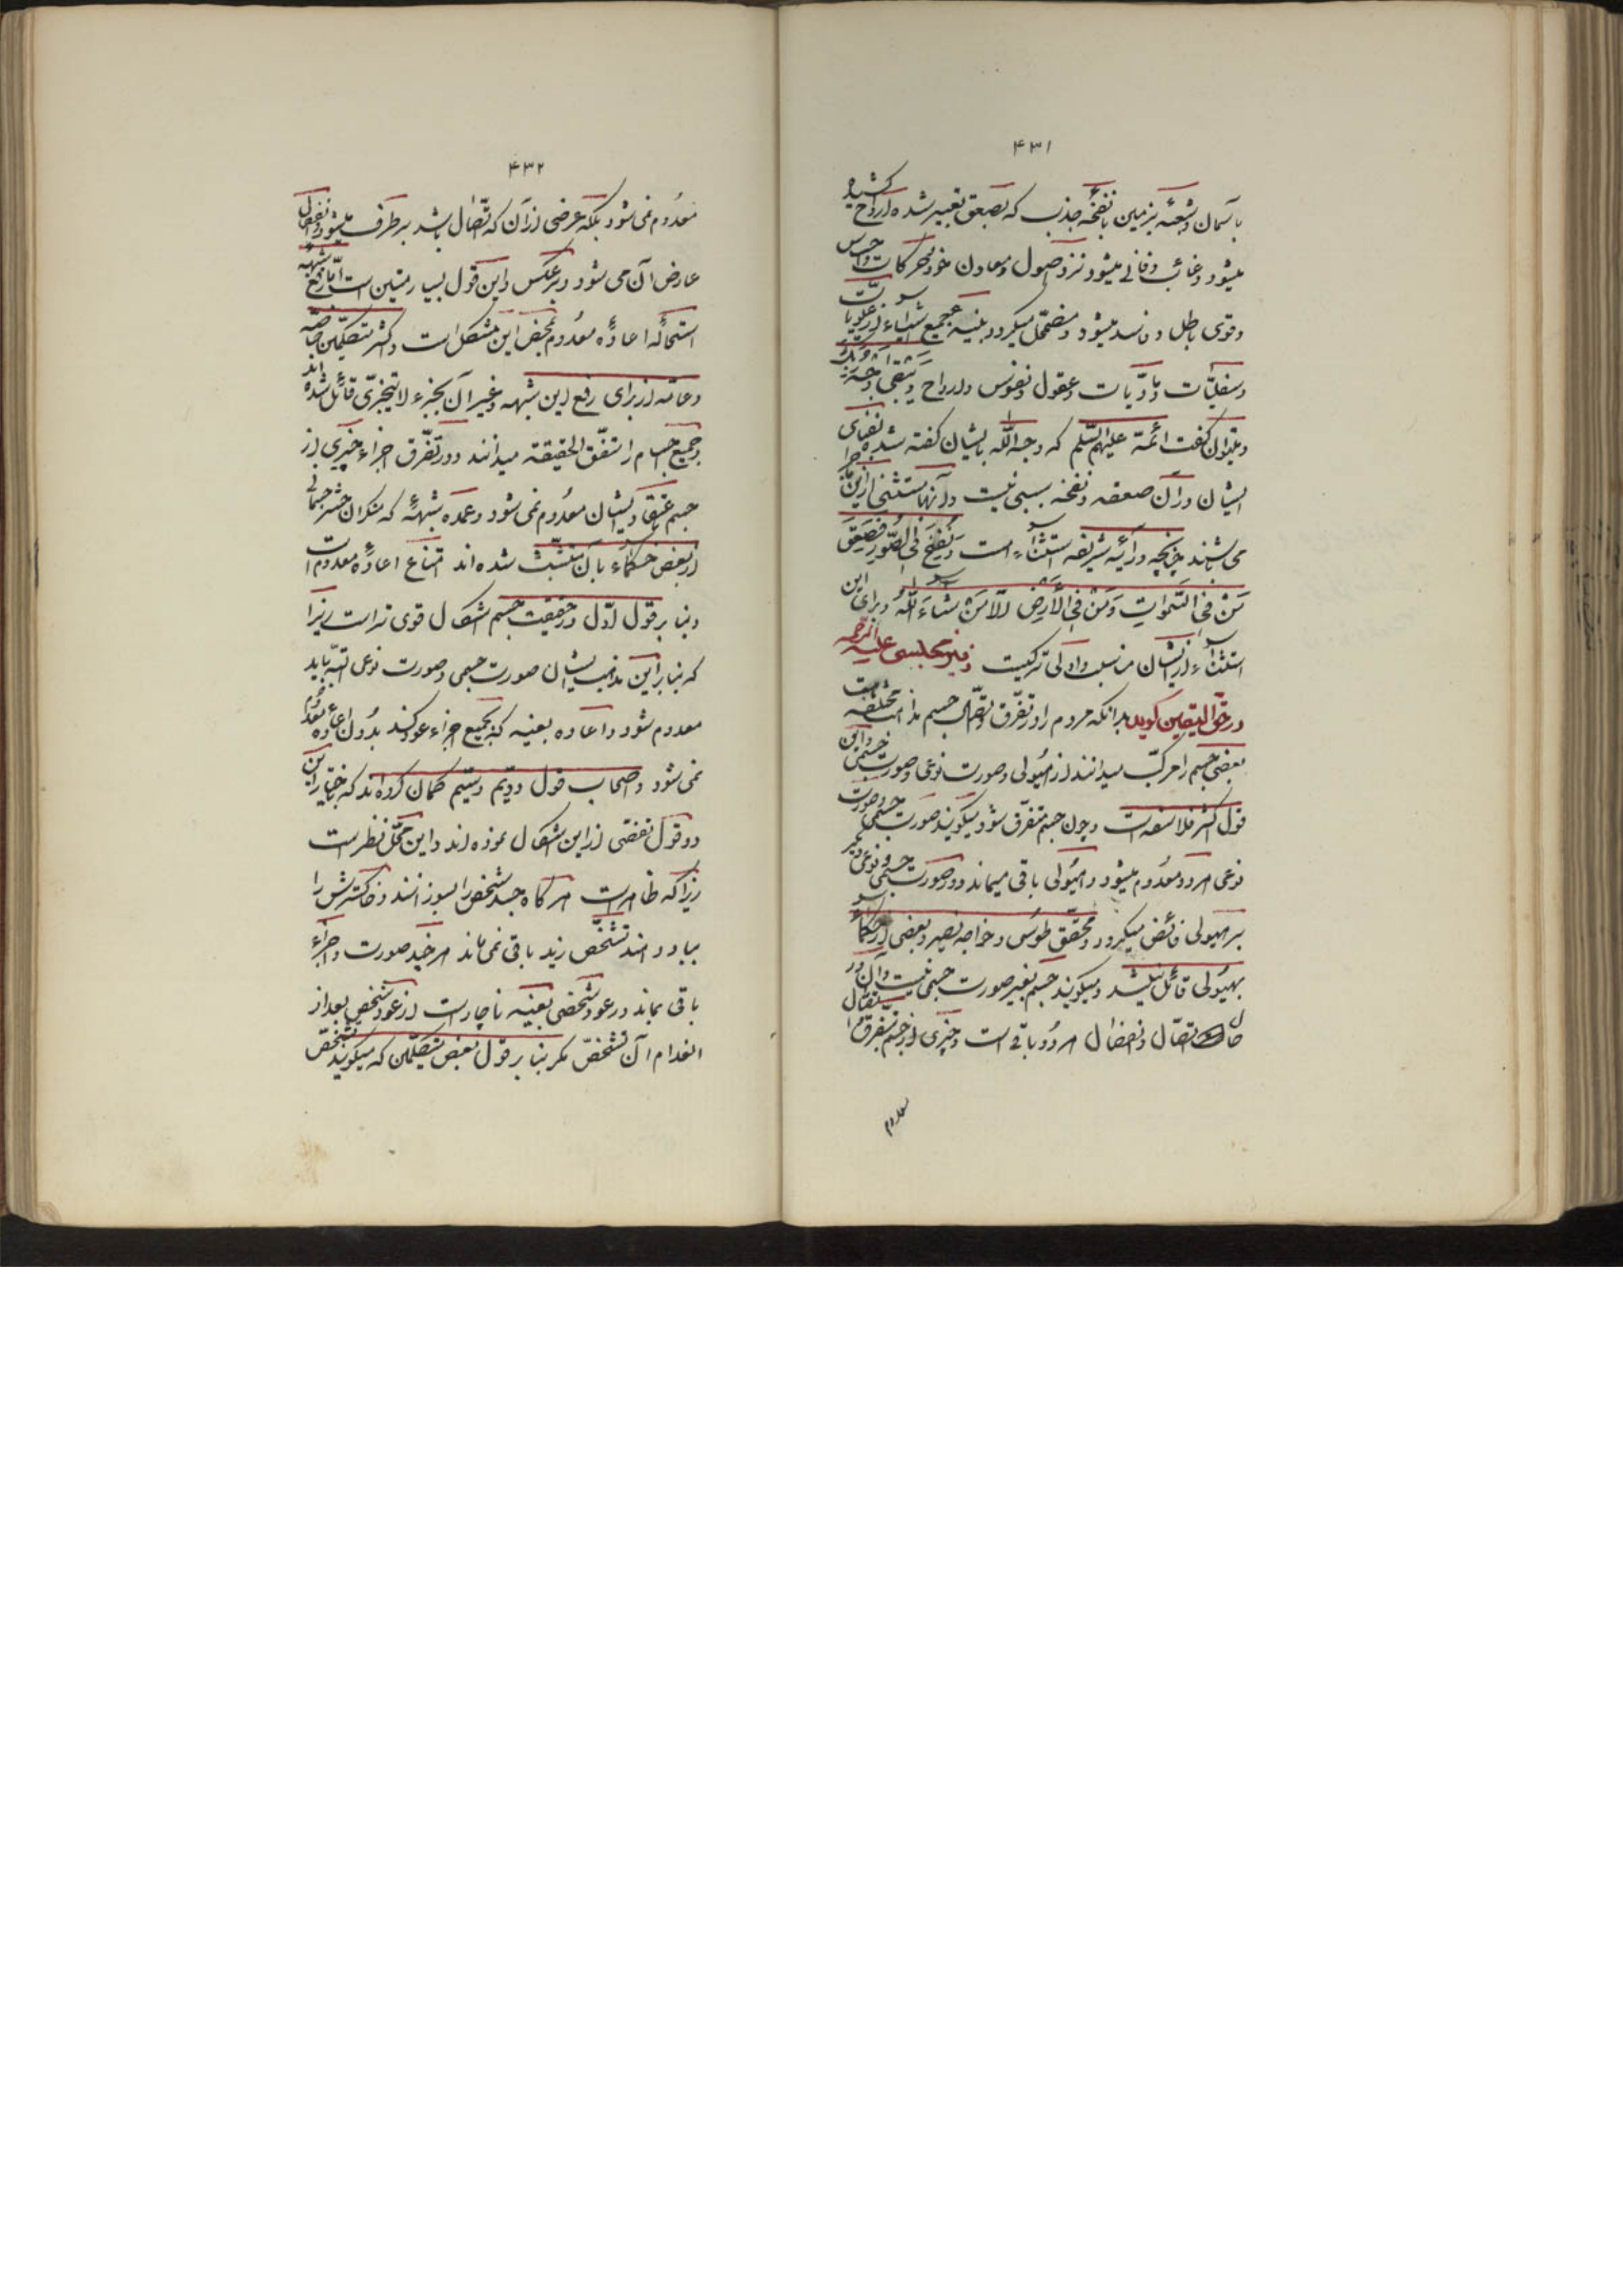 ۴۳۱
بآسمان و اشعّه بزمین با نفخهٔ جذب که بصعق تعبیر شده ارواح کشیده
میشود و غائب و فانی میشود نزد اصول و معادن خود و حرکات و حواس
و قوی باطل و فاسد میشود و مضمحل میگردد بنیهٔ جمیع اشیاء از علویات
و سفلیّات و مادّیات و عقول و نفوس و ارواح وَ یَبْقی وَجْهُ رَبِّکَ
و بتوان گفت ائمّة علیهم السّلم که وجه اللّه بایشان گفته شده فنای
ایشان در آن صعقه و نفخه بسببی نیست و آنها مستثنی ازین
می باشند چنانچه در آیهٔ شریفه استثناء است وَ نُفِخَ فِی الصُّورِ فَصَعِقَ
مَنْ فِی السَّمواتِ وَ مَنْ فِی الْأَرْضِ اِلّا مَنْ شاءَ اللّهُ و برای این
استثناء از ایشان مناسب و اولی تر کیست و نیز مجلسی علیه الرّحمه
در حقّ الیقین گوید بدانکه مردم را در تفرّق و اتّصال جسم مذاهب مختلفه است
بعضی جسم را مرکّب میدانند از هیُولی و صورت نوعی و صورت جسمی و این
قول اکثر فلاسفه است و چون جسم متفرّق شود میگویند صورت جسمی و صورت
نوعی هر دو معدُوم میشود و هیُولی باقی میماند و دو صورت جسمی و نوعی دیگر
بر هیولی فائض میگردد و محقّق طوُسی و خواجه نصیر و بعضی از حکماء
بهیُولی قائل نیستند و میگویند جسم بغیر صورت جسمی نیست و آن در
حال اتّصال و انفصال هر دو باقی است و چیزی از جسم بتفرق و اتصال
معدوم
۴۳۲
معدُوم نمی شود بلکه عرضی از آن که اتّصال باشد بر طرف میشود و انفصال
عارض آن می شود و بر عکس و این قول بسیار متین است امّا رفع شبههٔ
استحالهٔ اعادهٔ معدُوم بمحض این مشکل است و اکثر متکلّمین خاصّه
و عامّه از برای رفع این شبهه و غیر آن بجزء لا یتجزّی قائل شده اند
و جمیع اجسام را متّفق الحقیقة میدانند و در تفرّق اجزاء چیزی از
جسم بمعتقد ایشان معدُوم نمی شود و عمده شبههٔ که منکران حشر جسمانی
از بعض حکماء بآن متشبّث شده اند امتناع اعادهٔ معدوم است
و بنا بر قول اوّل در حقیقت جسم اشکال قوی تر است زیرا
که بنا بر این مذهب ایشان صورت جسمی و صورت نوعی البتّه باید
معدوم شود و اعاده بعینه که بجمیع اجزاء عود کند بدُون اعادهٔ معدُوم
نمی شود و اصحاب قول دویّم و سیّم گمان کرده اند که باختیار این
دو قول تفصّی از این اشکال نموده اند و این محلّ نظر است
زیرا که ظاهر است هر گاه جسد شخص را بسوزانند و خاکسترش را
بباد دهند تشخّص زید باقی نمی ماند هر چند صورت و اجزاء
باقی بماند و در عود شخصی بعینه ناچار است از عود تشخّص بعد از
انعدام آن تشخّص مگر بنا بر قول بعض متکلّمین که میگویند تشخّص